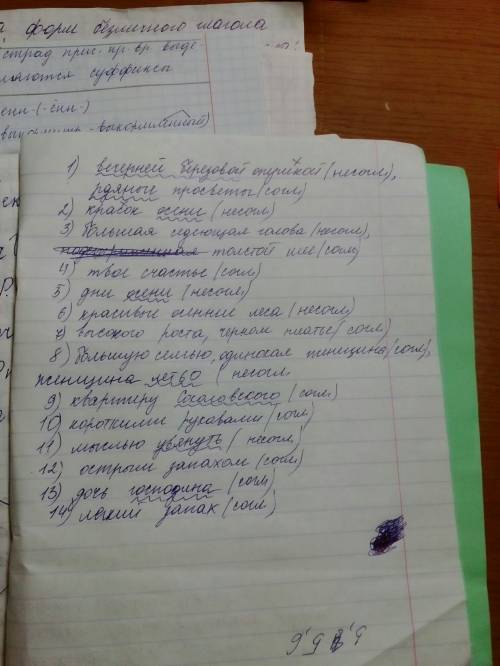 форм безличного глагола
страд прич. пр. вр. выде
ляются суффиксы
енн-(-ённ-)
1) вечерней березовой опушкой (несогл),
рдяные просветы (согл)
2) красок осени (несогл)
3) большая седеющая голова (несогл),
толстой шее (согл)
4) твое счастье (согл)
5) дни осени (несогл)
6) красивые осенние леса (несогл)
7) высокого роста, черном платье (согл)
8) большую семью, одинокая женщина (согл),
женщина (несогл
9) квартиру Соколовского (согл)
10) короткими рукавами (согл)
11) мыслью увянуть (несогл)
12) острым запахом (согл)
13) дочь господина (согл)
14) легкий запах (согл)